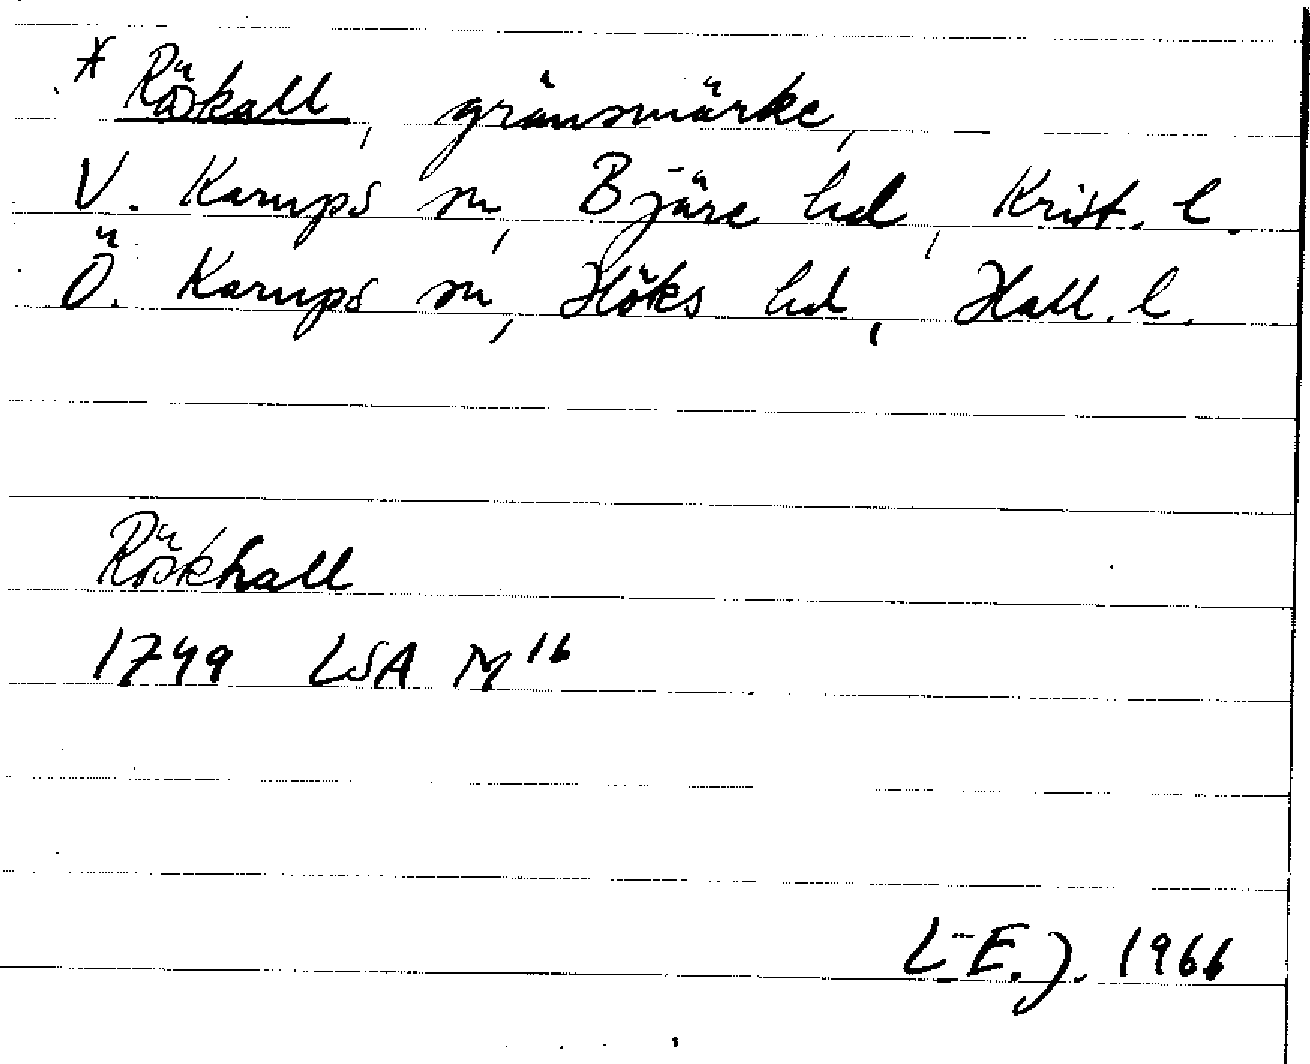 * Röskall, gränsmärke,
V. Karups sn, Bjäre hd, Krist. l.
Ö. Karups sn, Höks hd, Hall. l.
Röskhall
1749 LSA M16
L-E. J. 1966